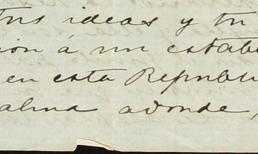 tus ideas y tu
ión á un estab
en esta Republi
alma adonde,